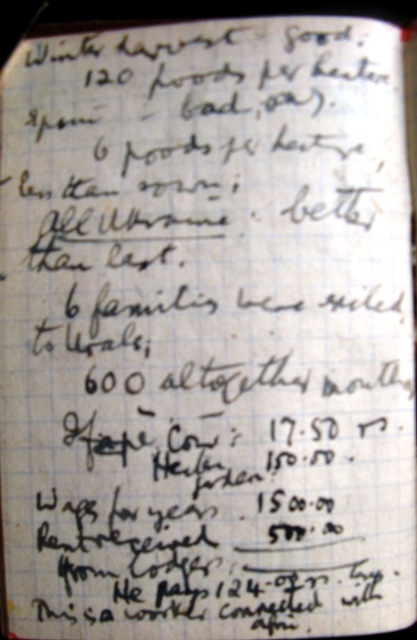 Winter harvest - good.
120 poods per hectare.
- bad, only
6 poods per hectare,
less than sown;
All Ukraine. better
than last.
6 families were exiled
to Urals;
600 altogether months
Cow: 17.50 rs.
150.00.
garden.
Wages for years 1500.00
Rent received 500.00
from lodger.
He pays 124.00 rs.
This is a worker connected with